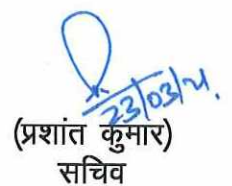 23/03/21.
(प्रशांत कुमार)
सचिव